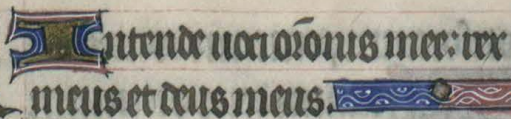 Intende uoci orōnis mee: rex
meus et deus meus.